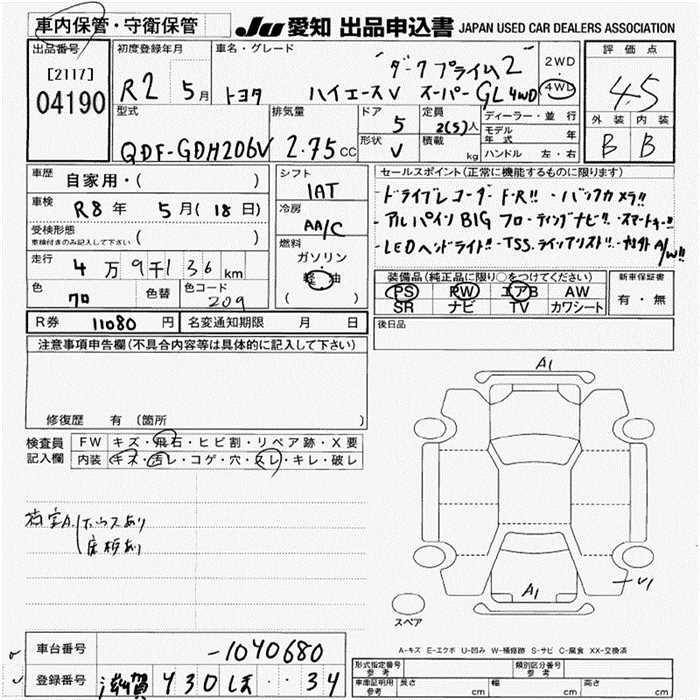 車内保管・守衛保管
JU 愛知 出品申込書 JAPAN USED CAR DEALERS ASSOCIATION
出品番号
[2117]
04190
初度登録年月
R2 5月
車名・グレード
"ダークプライム2"
トヨタ ハイエースV スーパー GL 4WD
2WD
4WD
評価点
4.5
外装 内装
B B
型式
QDF-GDH206V
排気量
2.75cc
ドア
5
形状
V
定員
2(5)人
積載
kg
ディーラー・並行
モデル年式 年
ハンドル 左・右
車歴
自家用・( )
車検
R8年 5月(18日)
受検形態
車検付きのみ記入して下さい ( )
走行
4万9千136km
色
クロ
色替
色コード
209
シフト
IAT
冷房
AA/C
燃料
ガソリン
軽油
( )
セールスポイント(正常に機能するものに限ります)
-ドライブレコーダーF・R!! -バックカメラ!!
-アルパインBIG フローティングナビ!! -スマートキー!!
-LEDヘッドライト!! -TSS.ライン アシスト!! A/W!!
装備品(純正品に限り○をつけてください)
PS PW エアB AW
SR ナビ TV カワシート
新車保証書
有・無
後日品
R券 11080円
名変通知期限 月 日
注意事項申告欄(不具合内容等は具体的に記入して下さい)
修復歴 有 (箇所 )
検査員記入欄
FW キズ・飛石・ヒビ割・リペア跡・X要
内装 キズ・汚レ・コゲ・穴・スレ・キレ・破レ
荷室A
ボウズあり
床板あり
A1
A1
U1
スペア
A-キズ E-エクボ U-凹み W-補修跡 S-サビ C-腐食 XX-交換済
車台番号
-1040680
登録番号
滋賀 430 ほ ・・34
形式指定番号 参考
類別区分番号 参考
車庫証明用 参考
長さ cm
幅 cm
高さ cm